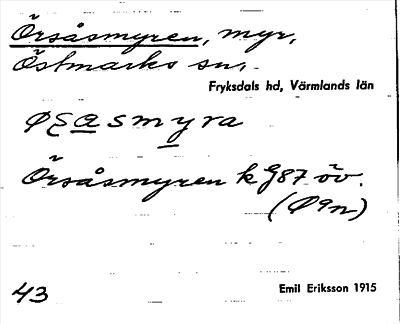 Örsåsmyren, myr,
Östmarks sn,
Fryksdals hd, Värmlands län
Örsåsmyren k G87 öv.
43
Emil Eriksson 1915